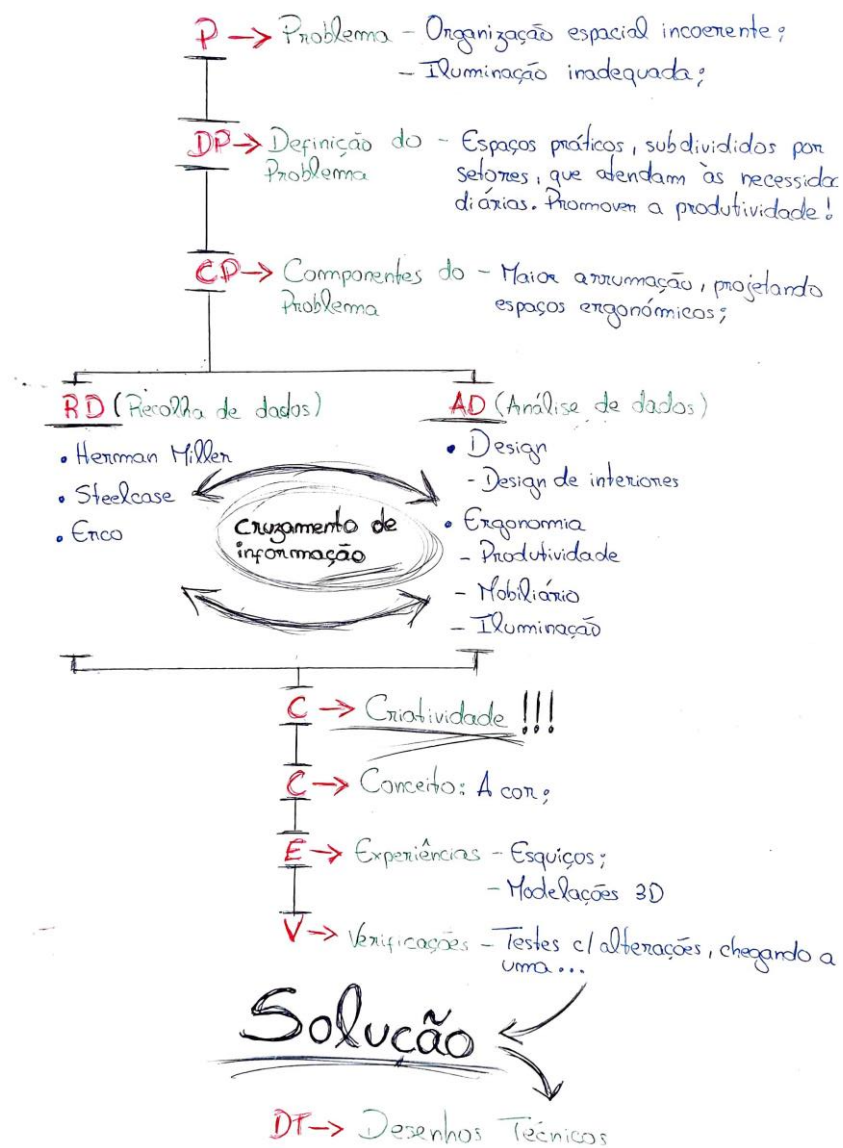 P → Problema - Organização espacial incoerente;
- Iluminação inadequada;
DP → Definição do - Espaços práticos, subdivididos por
Problema setores, que atendam às necessida
diárias. Promover a produtividade!
CP → Componentes do - Maior arrumação, projetando
Problema espaços ergonómicos;
RD (Recolha de dados)
• Herman Miller
• Steelcase
• Erco
AD (Análise de dados)
• Design
- Design de interiores
• Ergonomia
- Produtividade
- Mobiliário
- Iluminação
Cruzamento de
informação
C → Criatividade !!!
C → Conceito: A cor;
E → Experiências - Esquiços;
- Modelações 3D
V → Verificações - Testes c/ alterações, chegando a
uma...
Solução
DT → Desenhos Técnicos